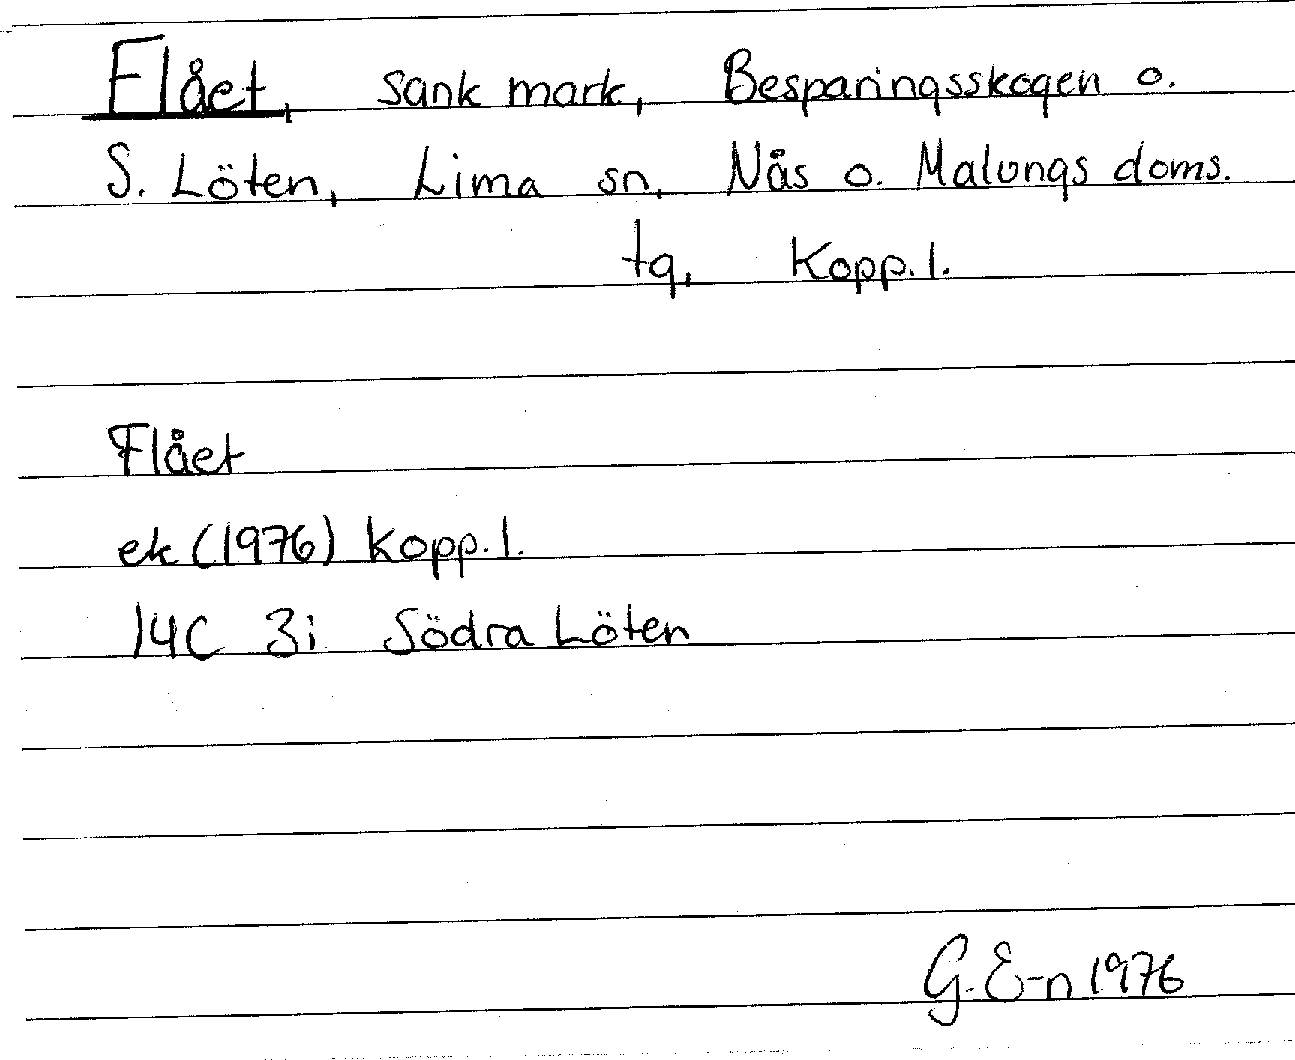 Flået, sank mark, Besparingsskogen o.
S. Löten, Lima sn, Nås o. Malungs doms.
tg, Kopp. l.
Flået
ek (1976) Kopp. l.
14C 3i Södra Löten
G. E-n 1976